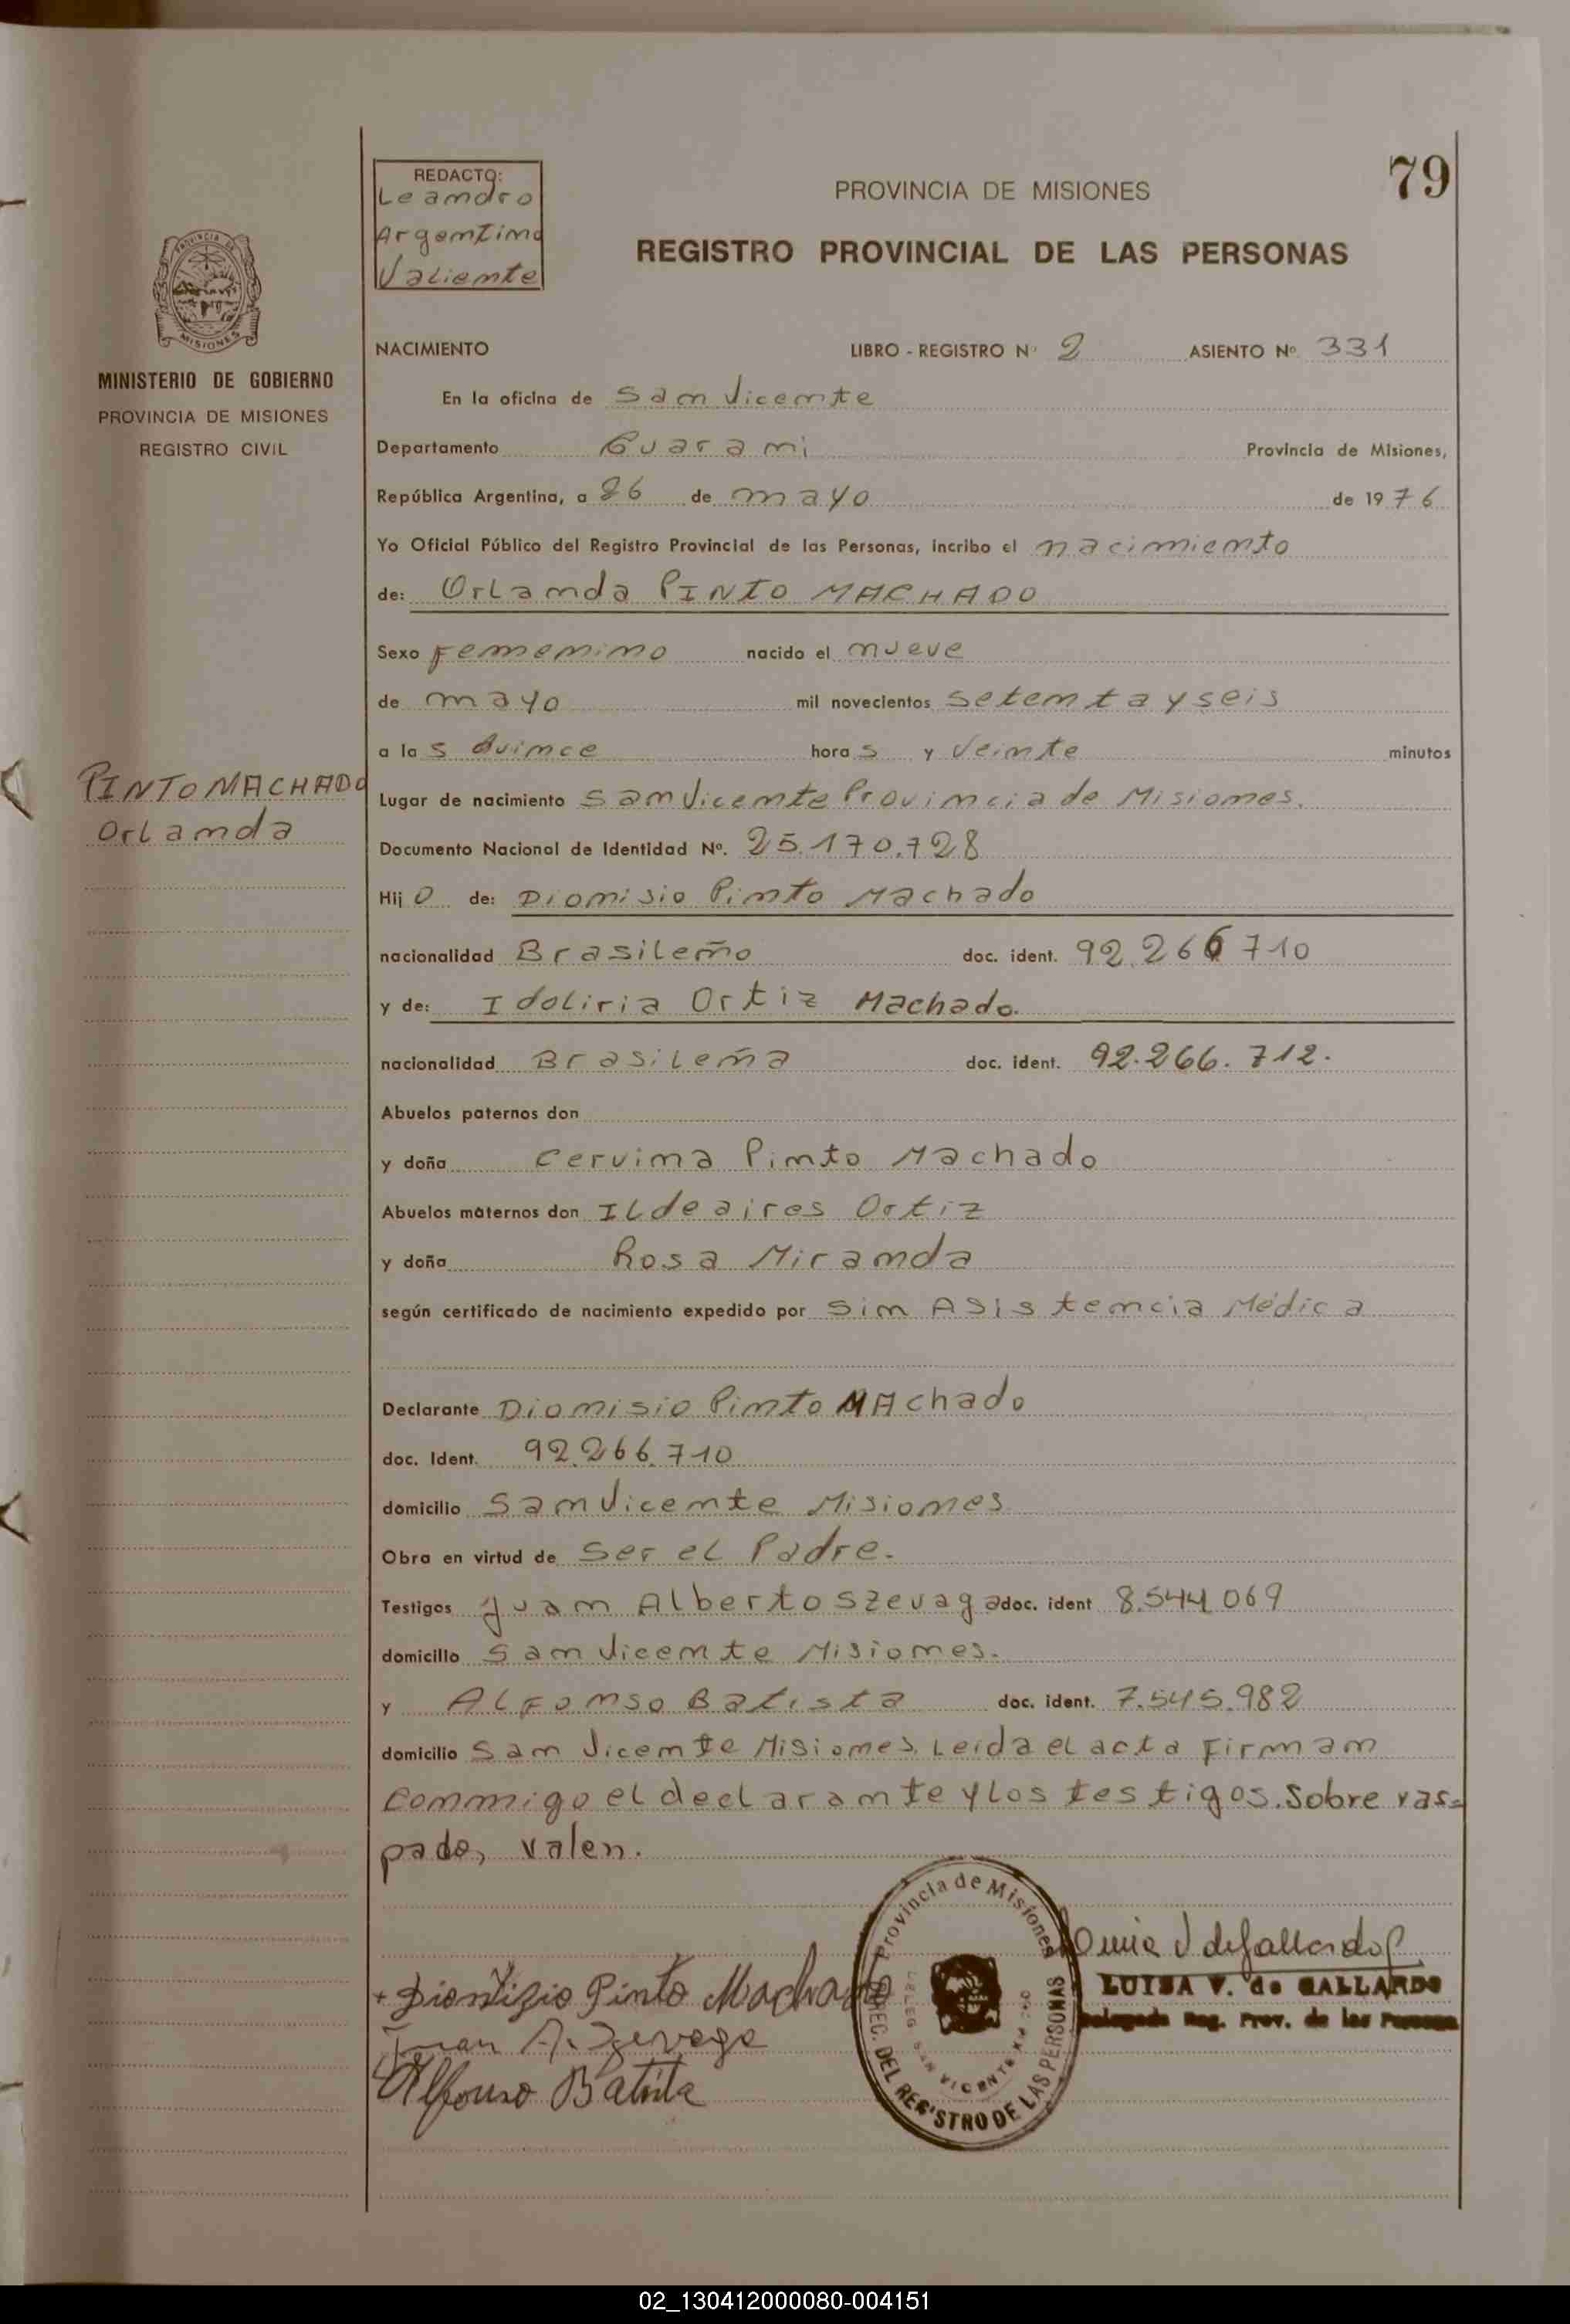 79
REDACTO:
Leandro
Argentino
Valiente
PROVINCIA DE MISIONES
REGISTRO PROVINCIAL DE LAS PERSONAS
PROVINCIA DE
MISIONES
MINISTERIO DE GOBIERNO
PROVINCIA DE MISIONES
REGISTRO CIVIL
NACIMIENTO LIBRO - REGISTRO Nº 2 ASIENTO Nº 331
En la oficina de San Vicente
Departamento Guarani Provincia de Misiones,
República Argentina, a 26 de mayo de 1976
Yo Oficial Público del Registro Provincial de las Personas, incribo el nacimiento
de: Orlanda PINTO MACHADO
Sexo Femenino nacido el nueve
de mayo mil novecientos setenta y seis
a las quince horas y veinte minutos
PINTO MACHADO
Orlanda
Lugar de nacimiento San Vicente Provincia de Misiones.
Documento Nacional de Identidad Nº. 25.170.728
Hijo de: Dionisio Pinto Machado
nacionalidad Brasileño doc. ident. 92.266710
y de: Idoliria Ortiz Machado.
nacionalidad Brasileña doc. ident. 92.266.712.
Abuelos paternos don
y doña Cervina Pinto Machado
Abuelos maternos don Ildeaires Ortiz
y doña Rosa Miranda
según certificado de nacimiento expedido por Sin Asistencia Médica
Declarante Dionisio Pinto MAchado
doc. Ident. 92.266.710
domicilio San Vicente Misiones
Obra en virtud de Ser el Padre.
Testigos Juan Alberto Szevaga doc. ident 8.544.069
domicilio San Vicente Misiones.
y Alfonso Batista doc. ident. 7.545.982
domicilio San Vicente Misiones. Leida el acta Firman
conmigo el declarante y los testigos. Sobre ras=
pado, valen.
Provincia de Misiones
DIREC. DEL REGISTRO DE LAS PERSONAS
+ Dionizio Pinto Machado
Alfonso Batista
LUISA V. de GALLARDO
Delegada Reg. Prov. de las Personas
02_130412000080-004151